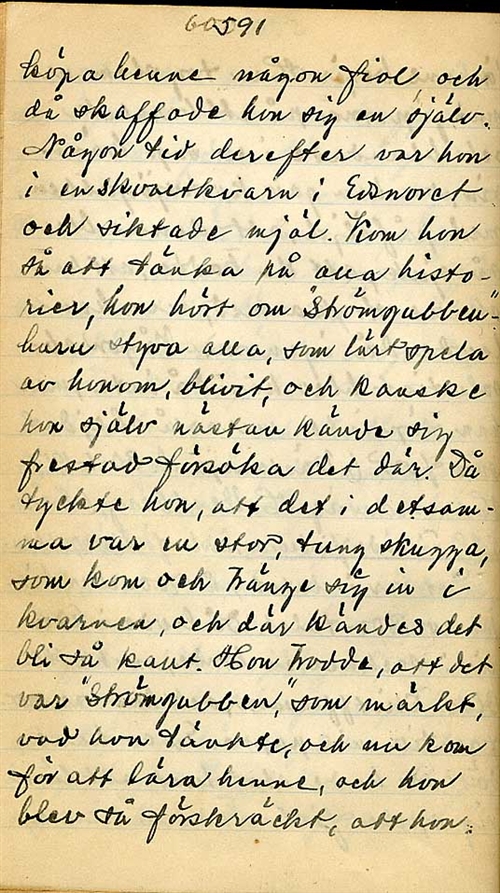 60591
köpa henne någon fiol och
då skaffade hon sig en själv.
Någon tid derefter var hon
i en skvaltkvarn i Edsnoret
och siktade mjäl. Kom hon
så att tänka på alla histo-
rier, hon hört om "Strömgubben"-
huru styva alla, som lärt spela
av honom, blivit, och kanske
hon själv nästan kände sig
frestad försöka det där. Då
tyckte hon, att det i detsam-
ma var en stor, tung skugga,
som kom och trängde sig in i
kvarnen, och där kändes det
bli så kallt. Hon trodde, att det
var "Strömgubben," som märkt,
vad hon tänkte, och nu kom
för att lära henne, och hon
blev så förskräckt, att hon